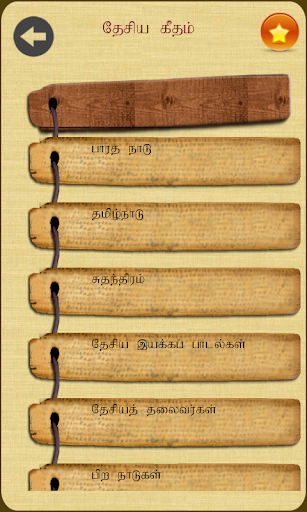 தேசிய கீதம்
பாரத நாடு
தமிழ்நாடு
சுதந்திரம்
தேசிய இயக்கப் பாடல்கள்
தேசியத் தலைவர்கள்
பிற நாடுகள்